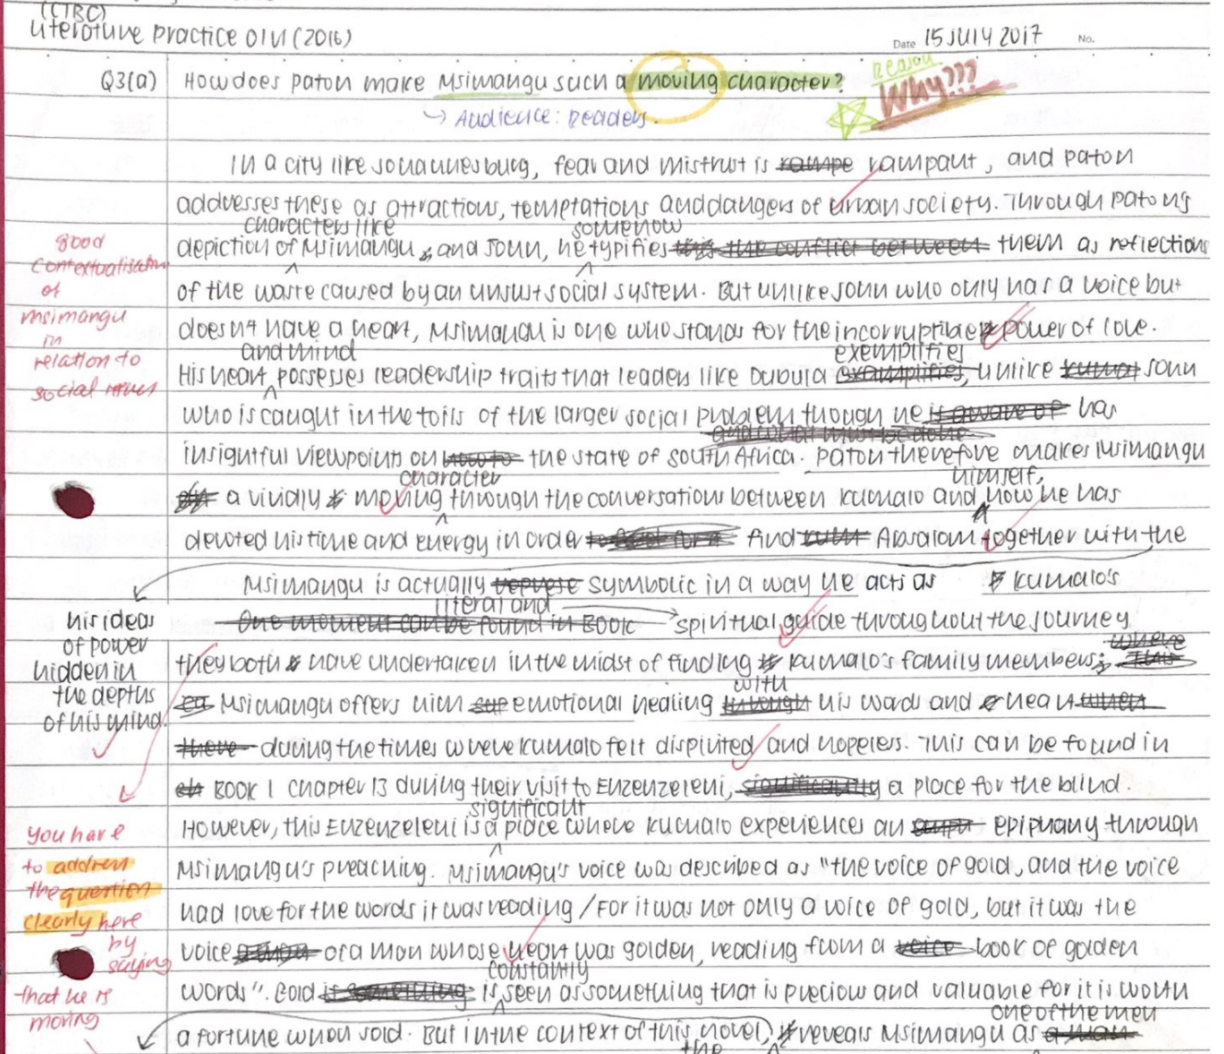 (CTBC)
Literature Practice 01N (2016)
Date 15 JULY 2017 No.
Q3(a) How does Paton make Msimangu such a moving character?
reason
Why???
→ Audience: Readers.
In a city like Johannesburg, fear and mistrust is rampe rampant, and Paton
addresses these as attractions, temptations and dangers of urban society. Through Paton's
characters like somehow
depiction of Msimangu, and John, he typifies this the conflict between them as reflections
of the waste caused by an unjust social system. But unlike John who only has a voice but
doesn't have a heart, Msimangu is one who stands for the incorruptible power of love.
and mind exemplifies
His heart possesses leadership traits that leaders like Dubula examplifies, unlike kumal John
who is caught in the toils of the larger social problem though he is aware of has
and what must be done
insightful viewpoints on how to the state of South Africa. Paton therefore makes Msimangu
character himself,
a vividly moving through the conversations between Kumalo and how he has
devoted his time and energy in order to find Absalom together with the
his ideas
of power
hidden in
the depths
of his mind.
Msimangu is actually symbolic in a way he acts as Kumalo's
literal and
One moment can be found in Book spiritual guide throughout the journey
they both have undertaken in the midst of finding Kumalo's family members; where This
with
Msimangu offers him emotional healing through his words and heart when
there during the times where Kumalo felt dispirited and hopeless. This can be found in
Book 1 Chapter 13 during their visit to Ezenzeleni, significantly a place for the blind.
significant
However, this Ezenzeleni is a place where Kumalo experiences an epiphany through
Msimangu's preaching. Msimangu's voice was described as "the voice of gold, and the voice
had love for the words it was reading / For it was not only a voice of gold, but it was the
voice a man of a man whose heart was golden, reading from a voice book of golden
constantly
words". Gold is something is seen as something that is precious and valuable for it is worth
one of the men
a fortune when sold. But in the context of this novel, it reveals Msimangu as a man
the
good
contextualisation
of
Msimangu
in
relation to
social issues
You have
to address
the question
clearly here
by
saying
that he is
moving